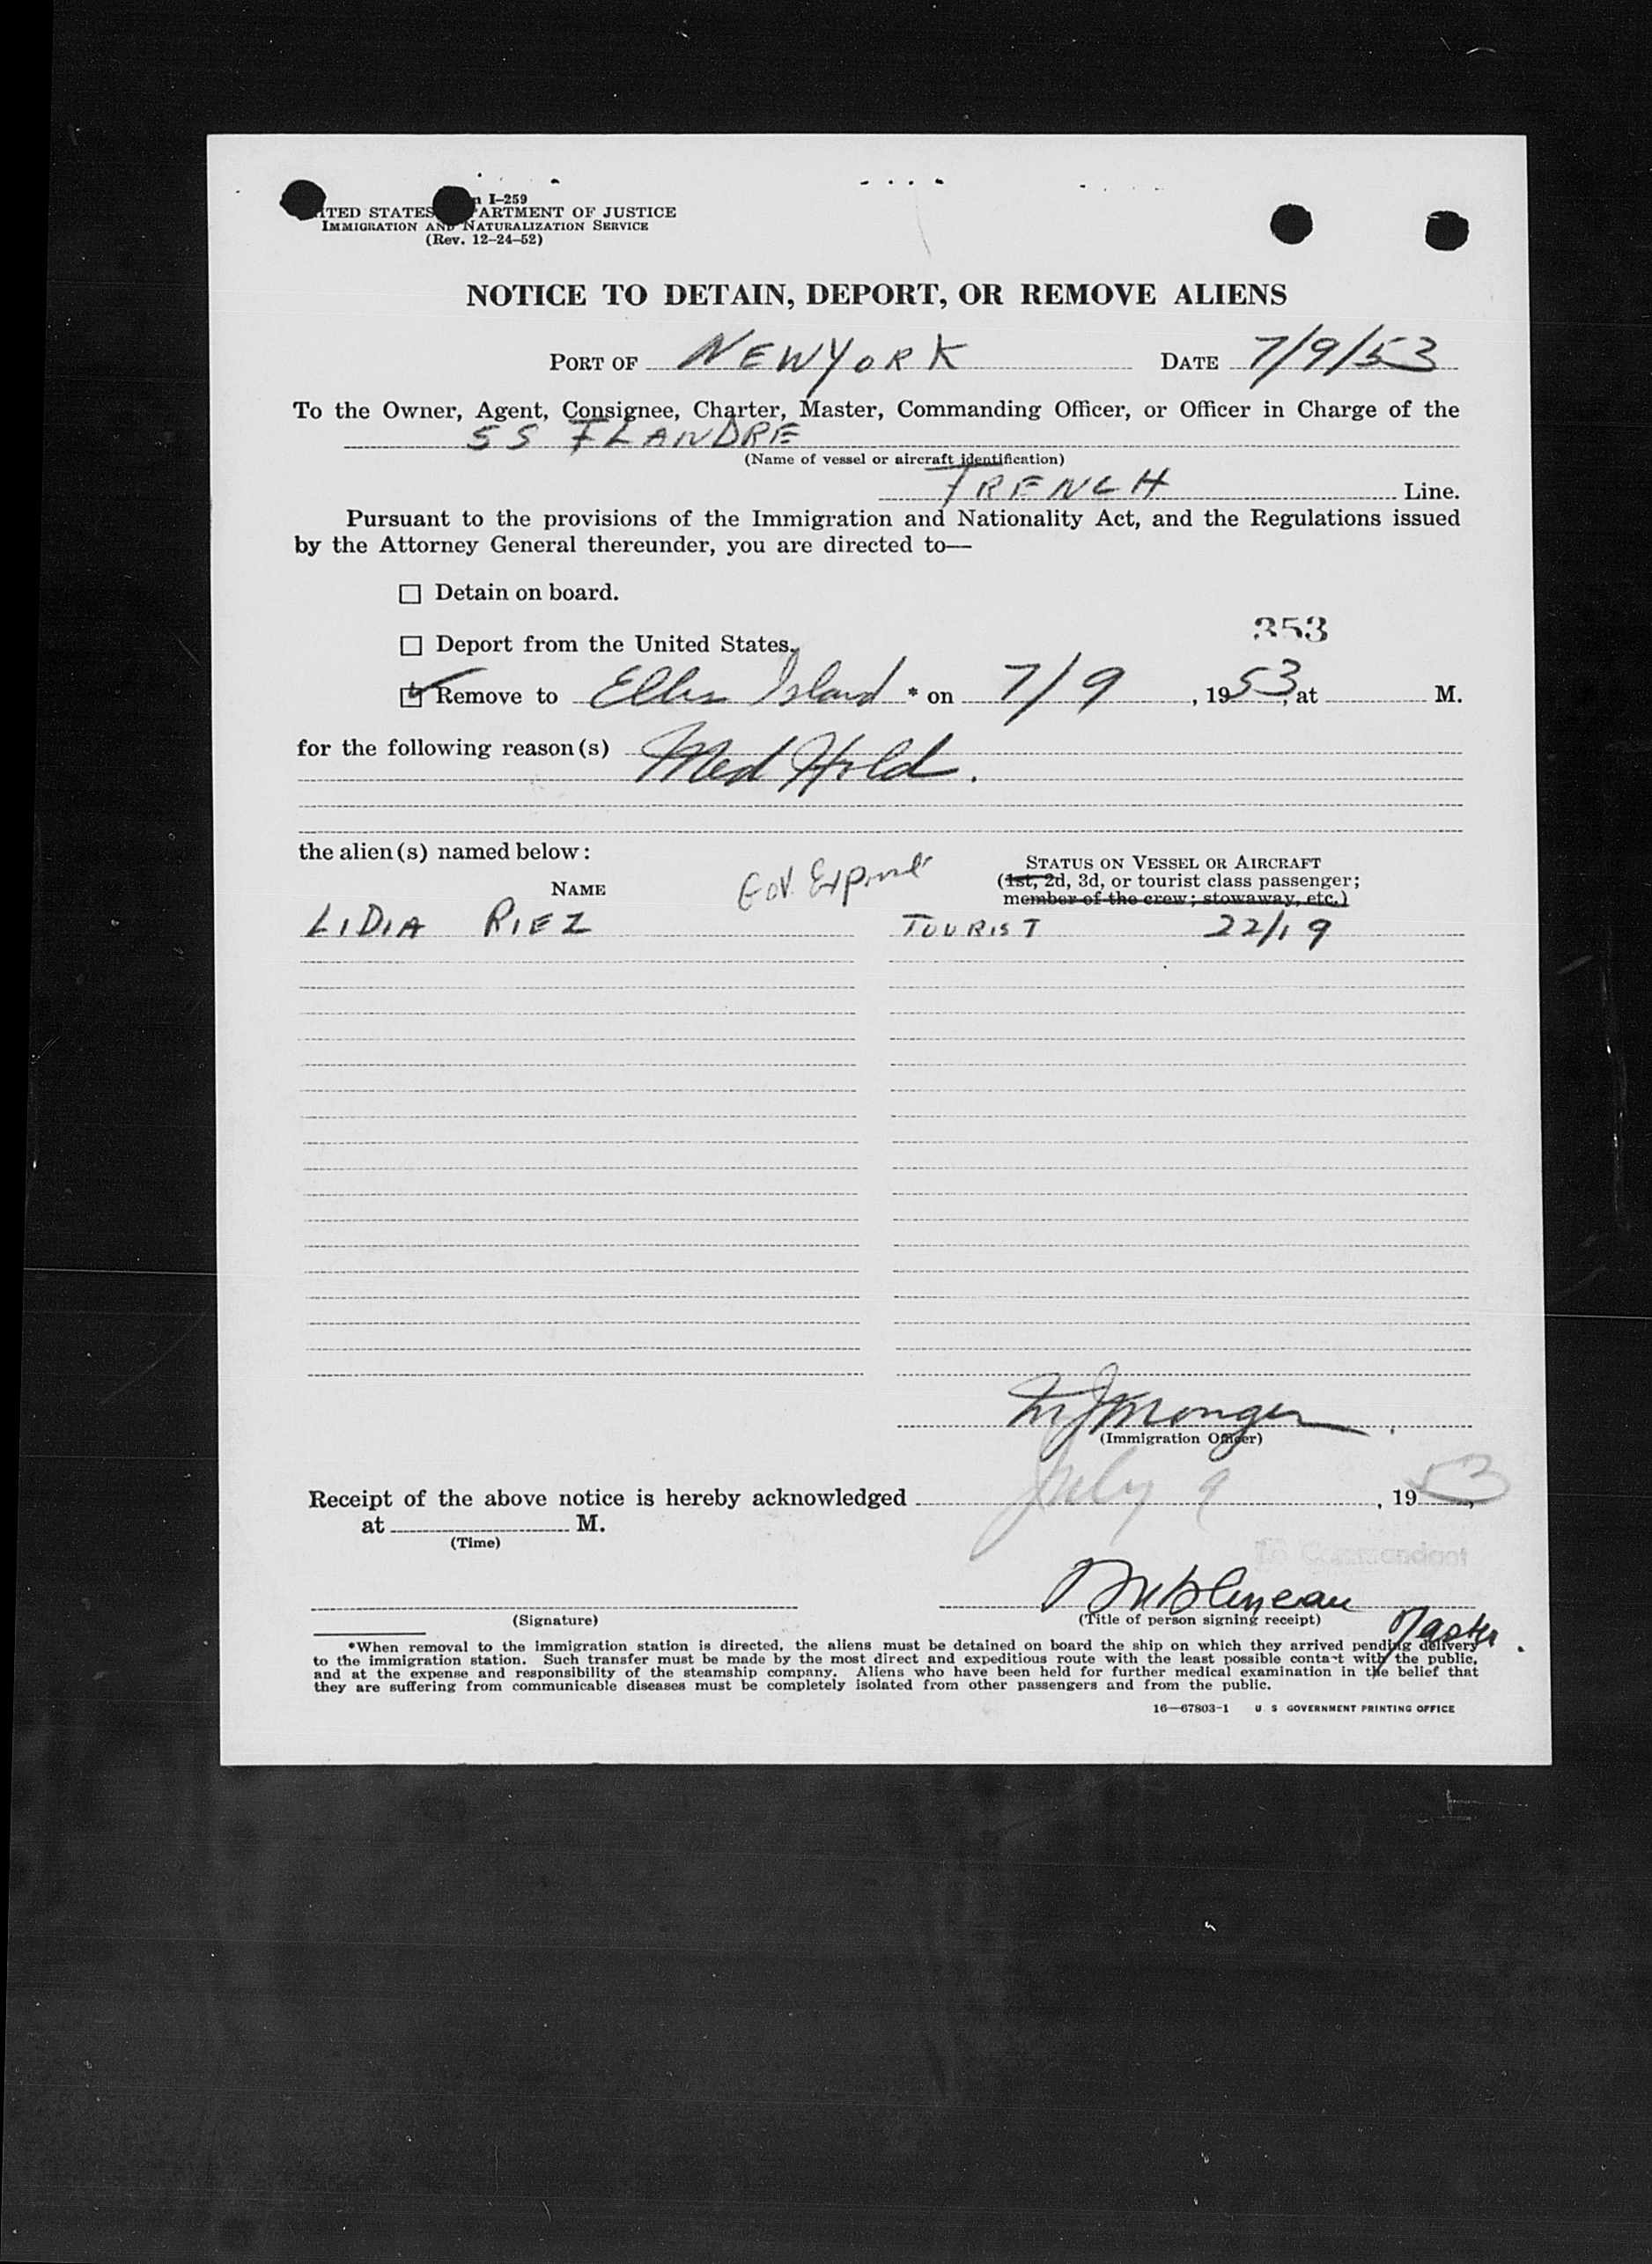 I-259
UNITED STATES DEPARTMENT OF JUSTICE
IMMIGRATION AND NATURALIZATION SERVICE
(Rev. 12-24-52)
NOTICE TO DETAIN, DEPORT, OR REMOVE ALIENS
PORT OF NEW YORK DATE 7/9/53
To the Owner, Agent, Consignee, Charter, Master, Commanding Officer, or Officer in Charge of the
SS FLANDRE
(Name of vessel or aircraft identification)
FRENCH Line.
Pursuant to the provisions of the Immigration and Nationality Act, and the Regulations issued
by the Attorney General thereunder, you are directed to—
Detain on board.
353
Deport from the United States.
Remove to Ellis Island * on 7/9, 1953, at M.
for the following reason(s) Med Hold.
the alien(s) named below:
STATUS ON VESSEL OR AIRCRAFT
(1st, 2d, 3d, or tourist class passenger;
member of the crew; stowaway, etc.)
NAME Gov. Expense
LIDIA RIEZ TOURIST 22/19
(Immigration Officer)
Receipt of the above notice is hereby acknowledged July 9, 1953,
at M.
(Time)
To Commandant
(Signature) (Title of person signing receipt) Master
*When removal to the immigration station is directed, the aliens must be detained on board the ship on which they arrived pending delivery
to the immigration station. Such transfer must be made by the most direct and expeditious route with the least possible contact with the public,
and at the expense and responsibility of the steamship company. Aliens who have been held for further medical examination in the belief that
they are suffering from communicable diseases must be completely isolated from other passengers and from the public.
16—67803-1 U S GOVERNMENT PRINTING OFFICE